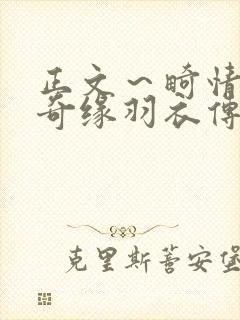 正文～畸情
奇缘羽衣傳
克里斯菩安堡